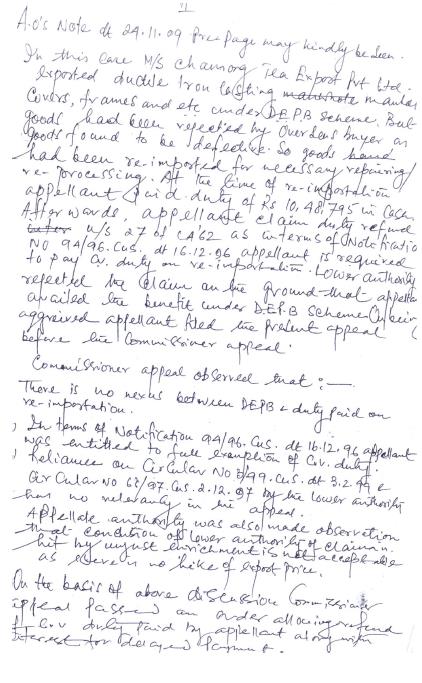 A.O's Note dt 24.11.09 Pre-Page may kindly be seen.
In this case M/S Chamong Tea Export Pvt Ltd.
exported ductile Iron Casting manhole
Covers, frames and etc under D.E.P.B Scheme. But
goods had been rejected by Overseas buyer as
goods found to be defective. So goods
had been re-imported for necessary repairing/
re-processing. At the time of re-importation
appellant paid duty of Rs 10,48,795 in Cash.
After wards, appellant claim duty refund
u/s 27 of CA'62 as in terms of Notificatio
NO 94/96.Cus. dt 16.12.96 appellant is required
to pay Cv. duty on re-importation. Lower authority
rejected the claim on the ground that appella
availed the benefit under DEP.B Scheme.
aggrived appellant filed the present appeal
before the Commissioner appeal.
Commissioner appeal observed that :—
There is no nexus between DEPB & duty paid on
re-importation.
, In terms of Notification 94/96.Cus. dt 16.12.96 appellant
was entitled to full exemption of Cv. duty.
, Reliance on Circular No 8/99.Cus. dt 3.2.99 &
Circular No 68/97.Cus. 2.12.97 by the lower authority
has no relevancy in the appeal.
Appellate authority was also made observation
that condition of lower authority of claim
hit by unjust enrichment is not acceptable
as there is no hike of export price.
On the basis of above discussion Commissioner
appeal passed an order allowing refund
of Cv duty paid by appellant along with
interest for delayed payment.